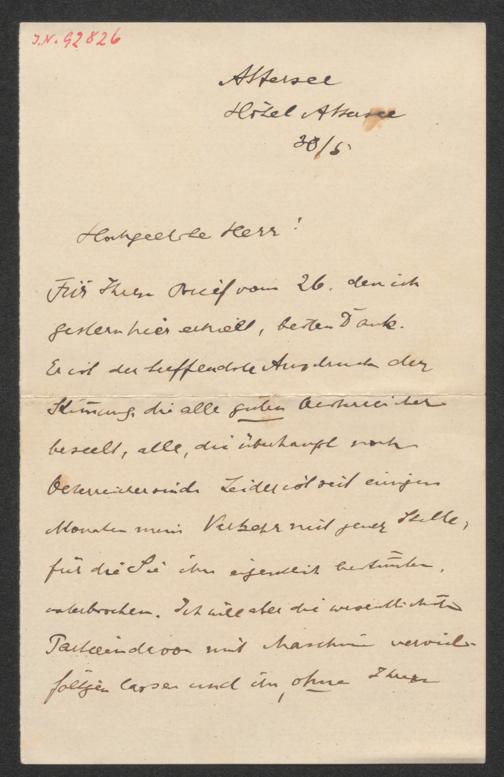 I.N. 92826
Attersee
Hôtel Attersee
30/5
Hochgeehrter Herr!
Für Ihren Brief vom 26. den ich
gestern hier erhielt, besten Dank.
Er ist der treffendste Ausdruck der
Stimmung, die alle guten Oesterreicher
beseelt, alle, die überhaupt noch
Oesterreicher sind. Leider ist seit einigen
Monaten mein Verkehr mit jener Stelle,
für die Sie ihn eigentlich bestimten,
unterbrochen. Ich will aber die wesentlichsten
Parthien davon mit Maschine verviel-
fältigen lassen und ihn, ohne Ihren